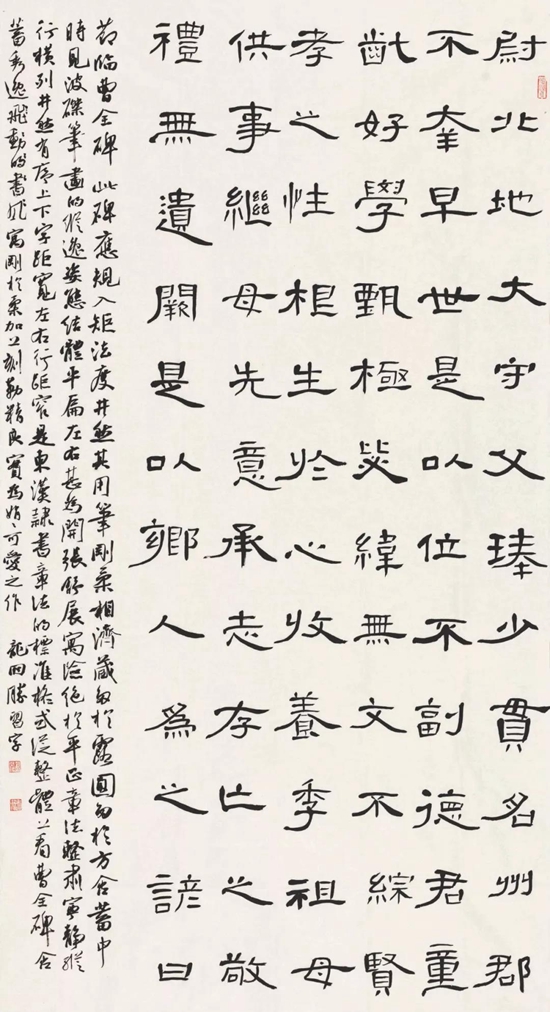 尉北地大守父琫少貫名州郡
不幸早世是以位不副德君童
齔好學甄極毖緯無文不綜賢
孝之性根生於心收養季祖母
供事繼母先意承志存亡之敬
禮無遺闕是以鄉人為之諺曰
節臨曹全碑此碑應規入矩法度井然其用筆剛柔相濟藏寓於露圓寓於方含蓄中
時見波磔筆畫的縱逸姿態結體平扁左右甚為開張舒展寓險絕於平正章法整肅寧靜縱
行橫列井然有序上下字距寬左右行距窄是東漢隸書章法的標準格式從整體上看曹全碑含
蓄秀逸飛動的書風寓剛於柔加之刻勒精良實為可愛之作 習字